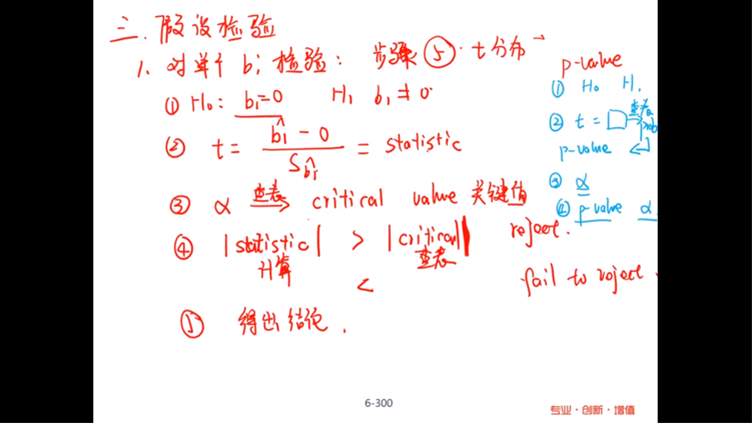 三.假设检验
1. 对单个 bi 检验: 步骤⑤. t分布
① H0: b1=0 H1 b1≠0
② t = (b̂1 - 0) / S b̂1 = statistic
③ α 查表 → critical value 关键值
④ |statistic| > |critical| reject.
计算 查表
< fail to reject.
⑤ 得出结论.
p-value
① H0 H1
② t = □ 查表
p-value
③ α
④ p-value α
6-300
专业·创新·增值